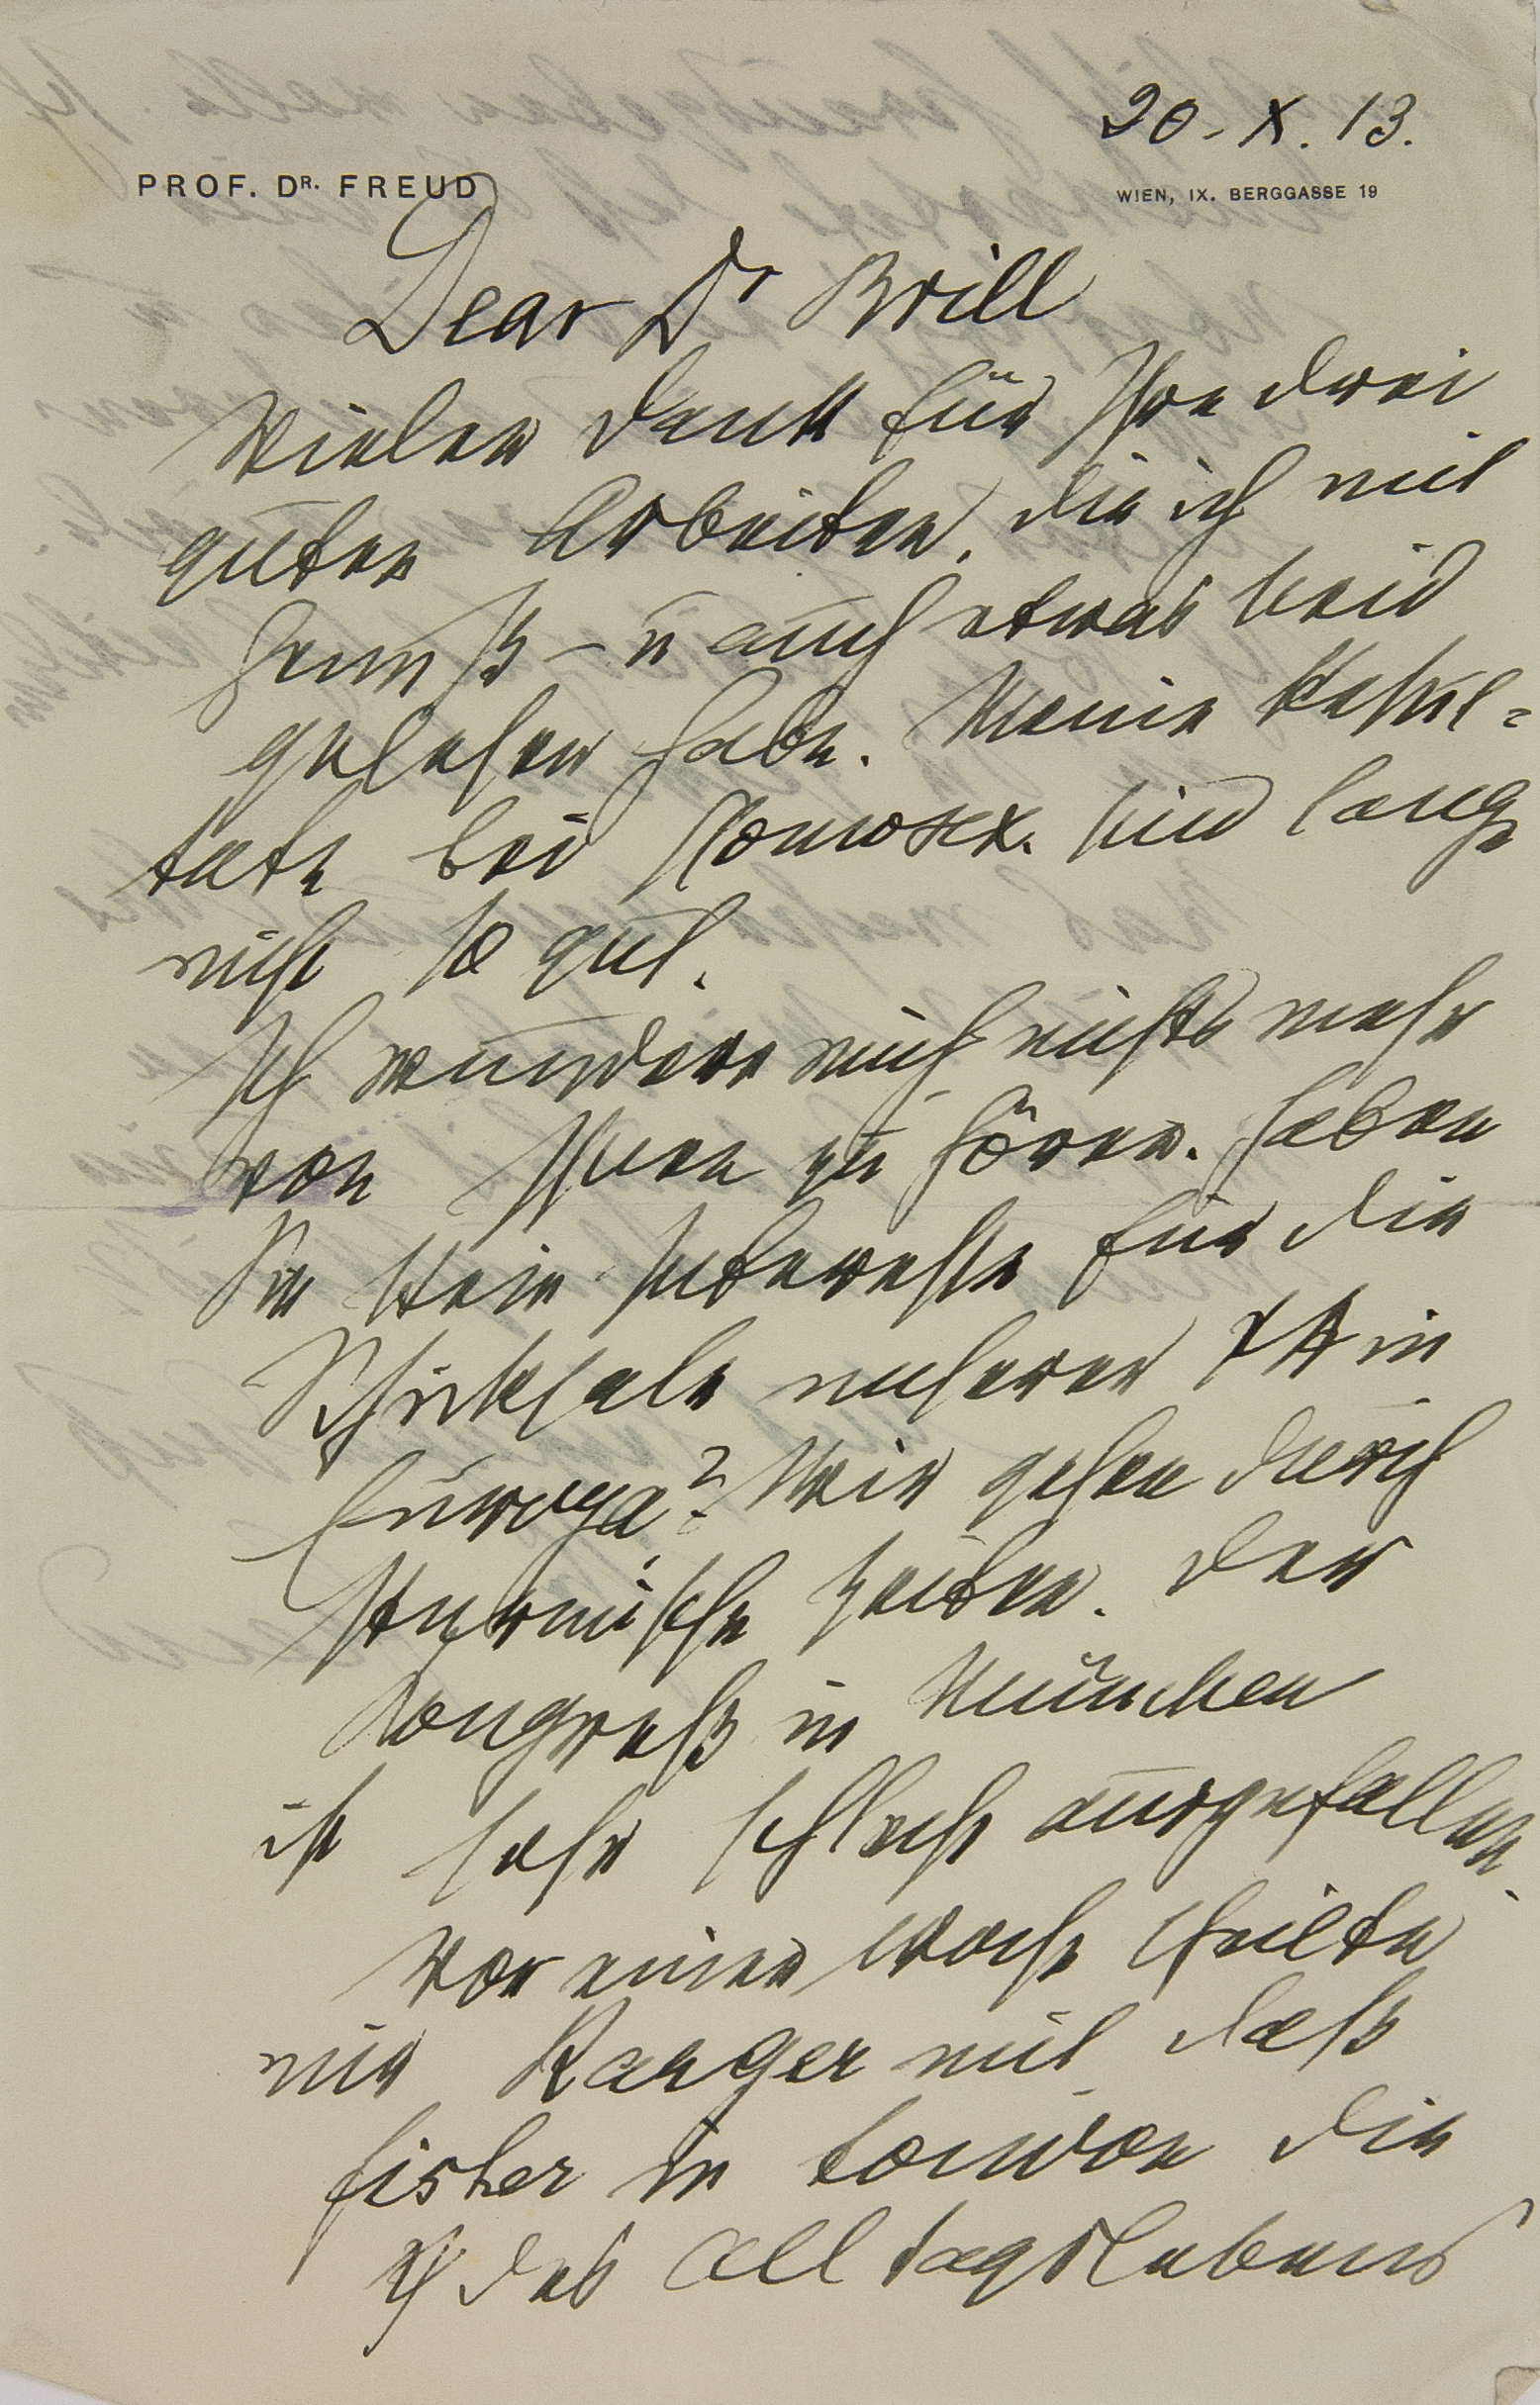 20. X. 13.
PROF. DR. FREUD
WIEN, IX. BERGGASSE 19
Dear Dr Brill
Vielen Dank für Ihre drei
guten Arbeiten, die ich mit
Genuß – u auch etwas Neid
gelesen habe. Meine Resul=
tate bei Homosex. sind lange
nicht so gut.
Ich wundere mich nichts mehr
von Ihnen zu hören. Haben
Sie kein Interesse für die
Schicksale unserer ΨΑ in
Europa? Wir gehen durch
stürmische Zeiten. Der
Kongreß in München
ist sehr schlecht ausgefallen.
Vor einer Woche theilte
mir Karger mit daß
Fisher in London die
Ψ des Alltagslebens